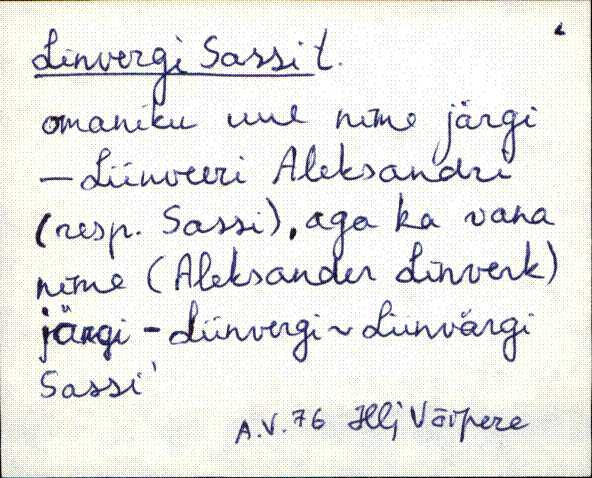 Linvergi Sassi t.
omaniku uue nime järgi
— Liinveeri Aleksandri
(resp. Sassi), aga ka vana
nime (Aleksander Linverk)
järgi - Liinvergi ~ Liinvärgi
Sassi'
A.V. 76 Hlj Väipere